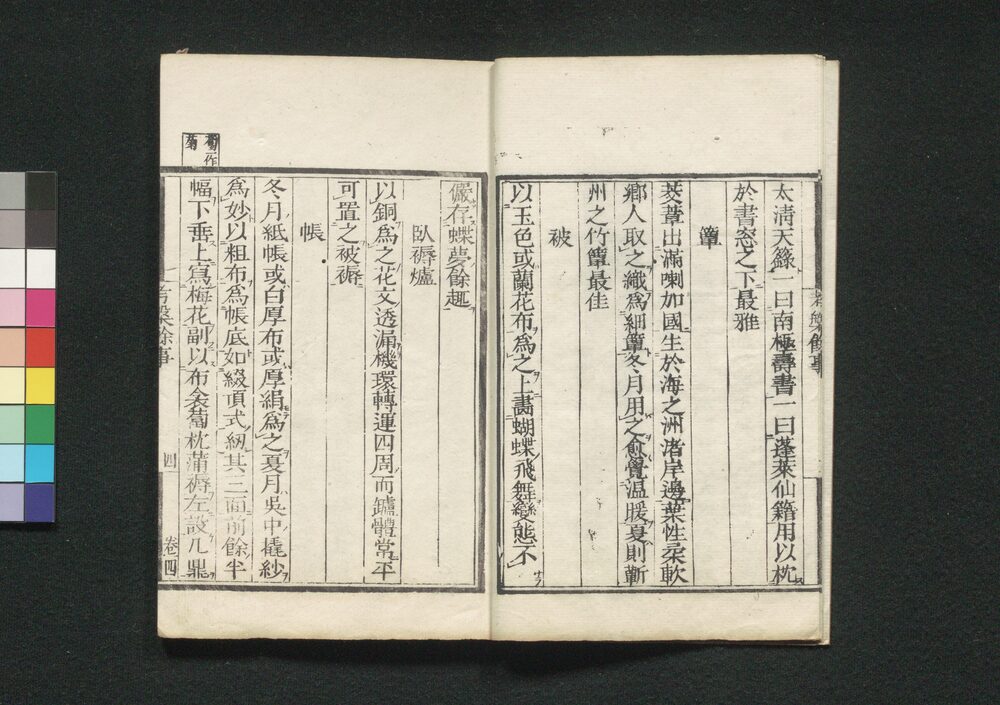 太淸天籙一曰南極壽書一曰蓬萊仙籍用以枕
於書窓之下最雅
簟
茭葦出滿喇加國生於海之洲渚岸邊葉性柔軟
鄉人取之織爲細簟冬月用之愈覺温暖夏則蘄
州之竹簟最佳
被
以玉色或蘭花布爲之上畵蝴蝶飛舞變態不
儼存蝶夢餘趣
臥褥爐
以銅爲之花文透漏機環轉運四周而罏體常平
可置之被褥
帳
冬月紙帳或白厚布或厚絹爲之夏月吳中撬紗
爲妙以粗布爲帳底如綴頂式紉其三面前餘半
幅下垂上寫梅花副以布衾菊枕蒲褥左設几鼎
考槃餘事
四
卷四